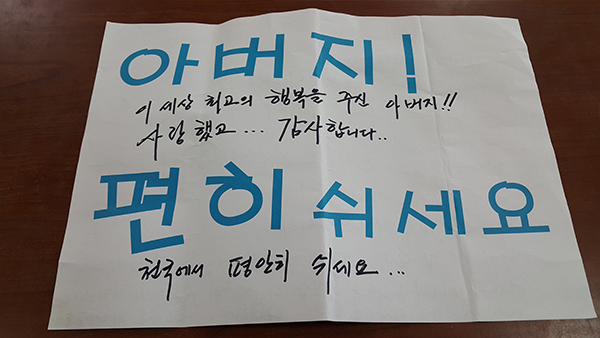 아버지!
이 세상 최고의 행복을 주신 아버지!!
사랑했고... 감사합니다..
편히 쉬세요
천국에서 평안히 쉬세요...